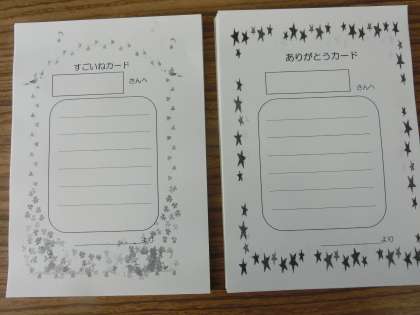 すごいねカード
さんへ
より
ありがとうカード
さんへ
より